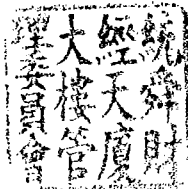 統舜財
經天廈
大樓管
理委員會